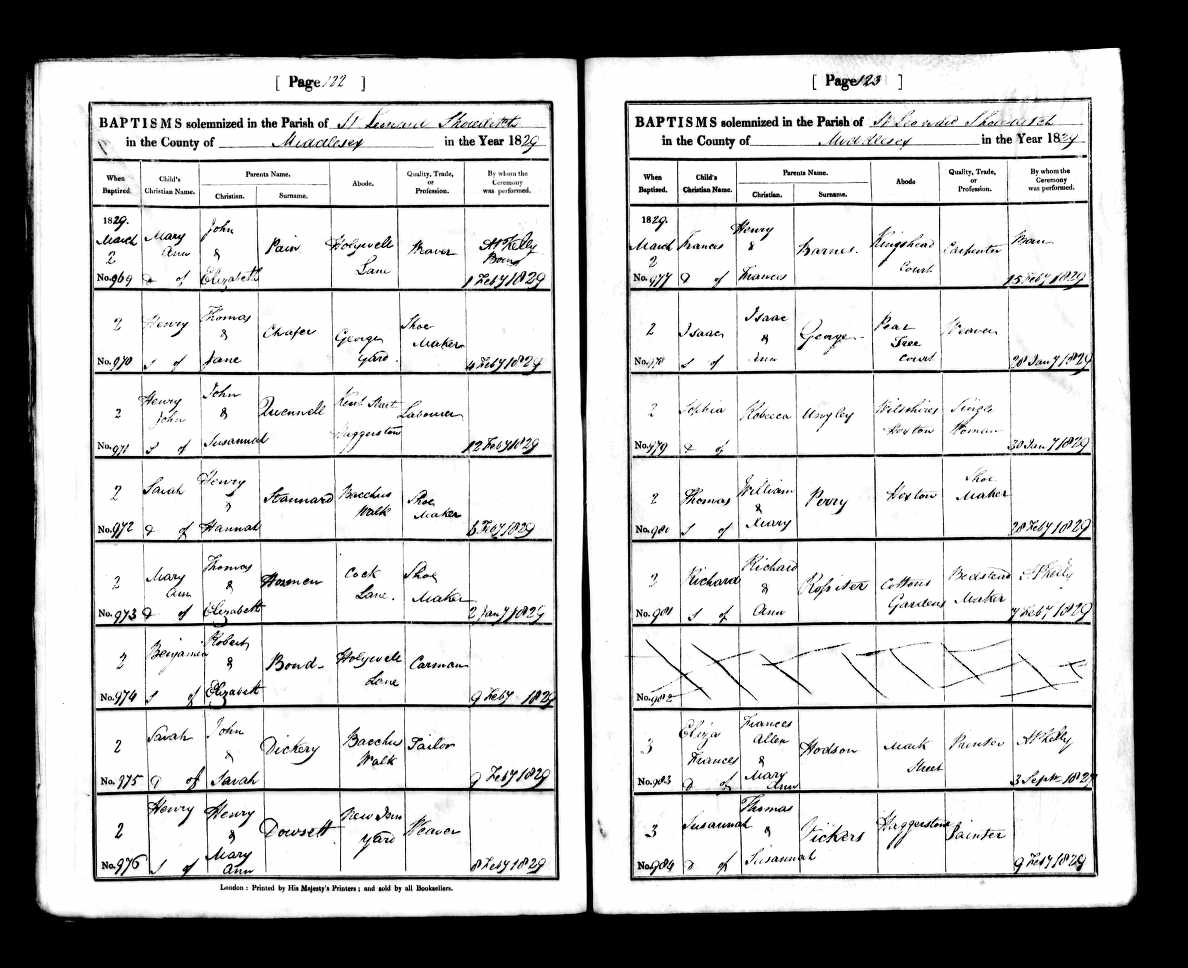 [ Page 122 ]
BAPTISMS solemnized in the Parish of St Leonard Shoreditch
in the County of Middlesex in the Year 1829
When Baptized.
Child's Christian Name.
Parents Name.
Christian.
Surname.
Abode.
Quality, Trade, or Profession.
By whom the Ceremony was performed.
1829.
March 2 Mary Ann John & Pain Holywell Lane Weaver AP Kelly Born
No. 969 D of Elizabeth 1 Feby 1829
2 Henry Thomas & Chafer George Yard. Shoe Maker
No. 970 S of Jane 4 Feby 1829
2 Henry John John & Quennell Kent Street Haggerston Labourer
No. 971 S of Susannah 12 Feby 1829
2 Sarah Henry & Stannard Bacchus Walk Shoe Maker
No. 972 D of Hannah 6 Feby 1829
2 Mary Ann Thomas & Cock Lane. Shoe Maker
No. 973 D of Elizabeth 2 Jany 1829
2 Benjamin Robert & Bond Holywell Lane Carman
No. 974 S of Elizabeth 9 Feby 1829
2 Sarah John & Dickery Bacchus Walk Tailor
No. 975 D of Sarah 9 Feby 1829
2 Henry Henry & Dowsett New Inn Yard Weaver
No. 976 S of Mary Ann 8 Feby 1829
London: Printed by His Majesty's Printers; and sold by all Booksellers.
[ Page 123 ]
BAPTISMS solemnized in the Parish of St Leonard Shoreditch
in the County of Middlesex in the Year 1829
When Baptized.
Child's Christian Name.
Parents Name.
Christian.
Surname.
Abode
Quality, Trade, or Profession.
By whom the Ceremony was performed.
1829.
March 2 Frances Henry & Barnes. Kingshead Court Carpenter Born
No. 977 D of Frances 15 Feby 1829
2 Isaac Isaac & George Pear Tree Court Weaver
No. 978 S of Ann 28 Jany 1829
2 Sophia Rebecca Ungley Wilshires Hoxton Single Woman
No. 979 D of 30 Jany 1829
2 Thomas William & Perry Hoxton Shoe Maker
No. 980 S of Mary 28 Feby 1829
2 Richard Richard & Rossiter Cottons Gardens Bedstead Maker AP Kelly
No. 981 S of Ann 7 Feby 1829
No. 982
3 Eliza Frances Frances Allen & Hodson Mark Street Painter AP Kelly
No. 983 D of Mary Ann 3 Septr 1827
3 Susannah Thomas & Vickers Haggerstone Painter
No. 984 D of Susannah 9 Feby 1829